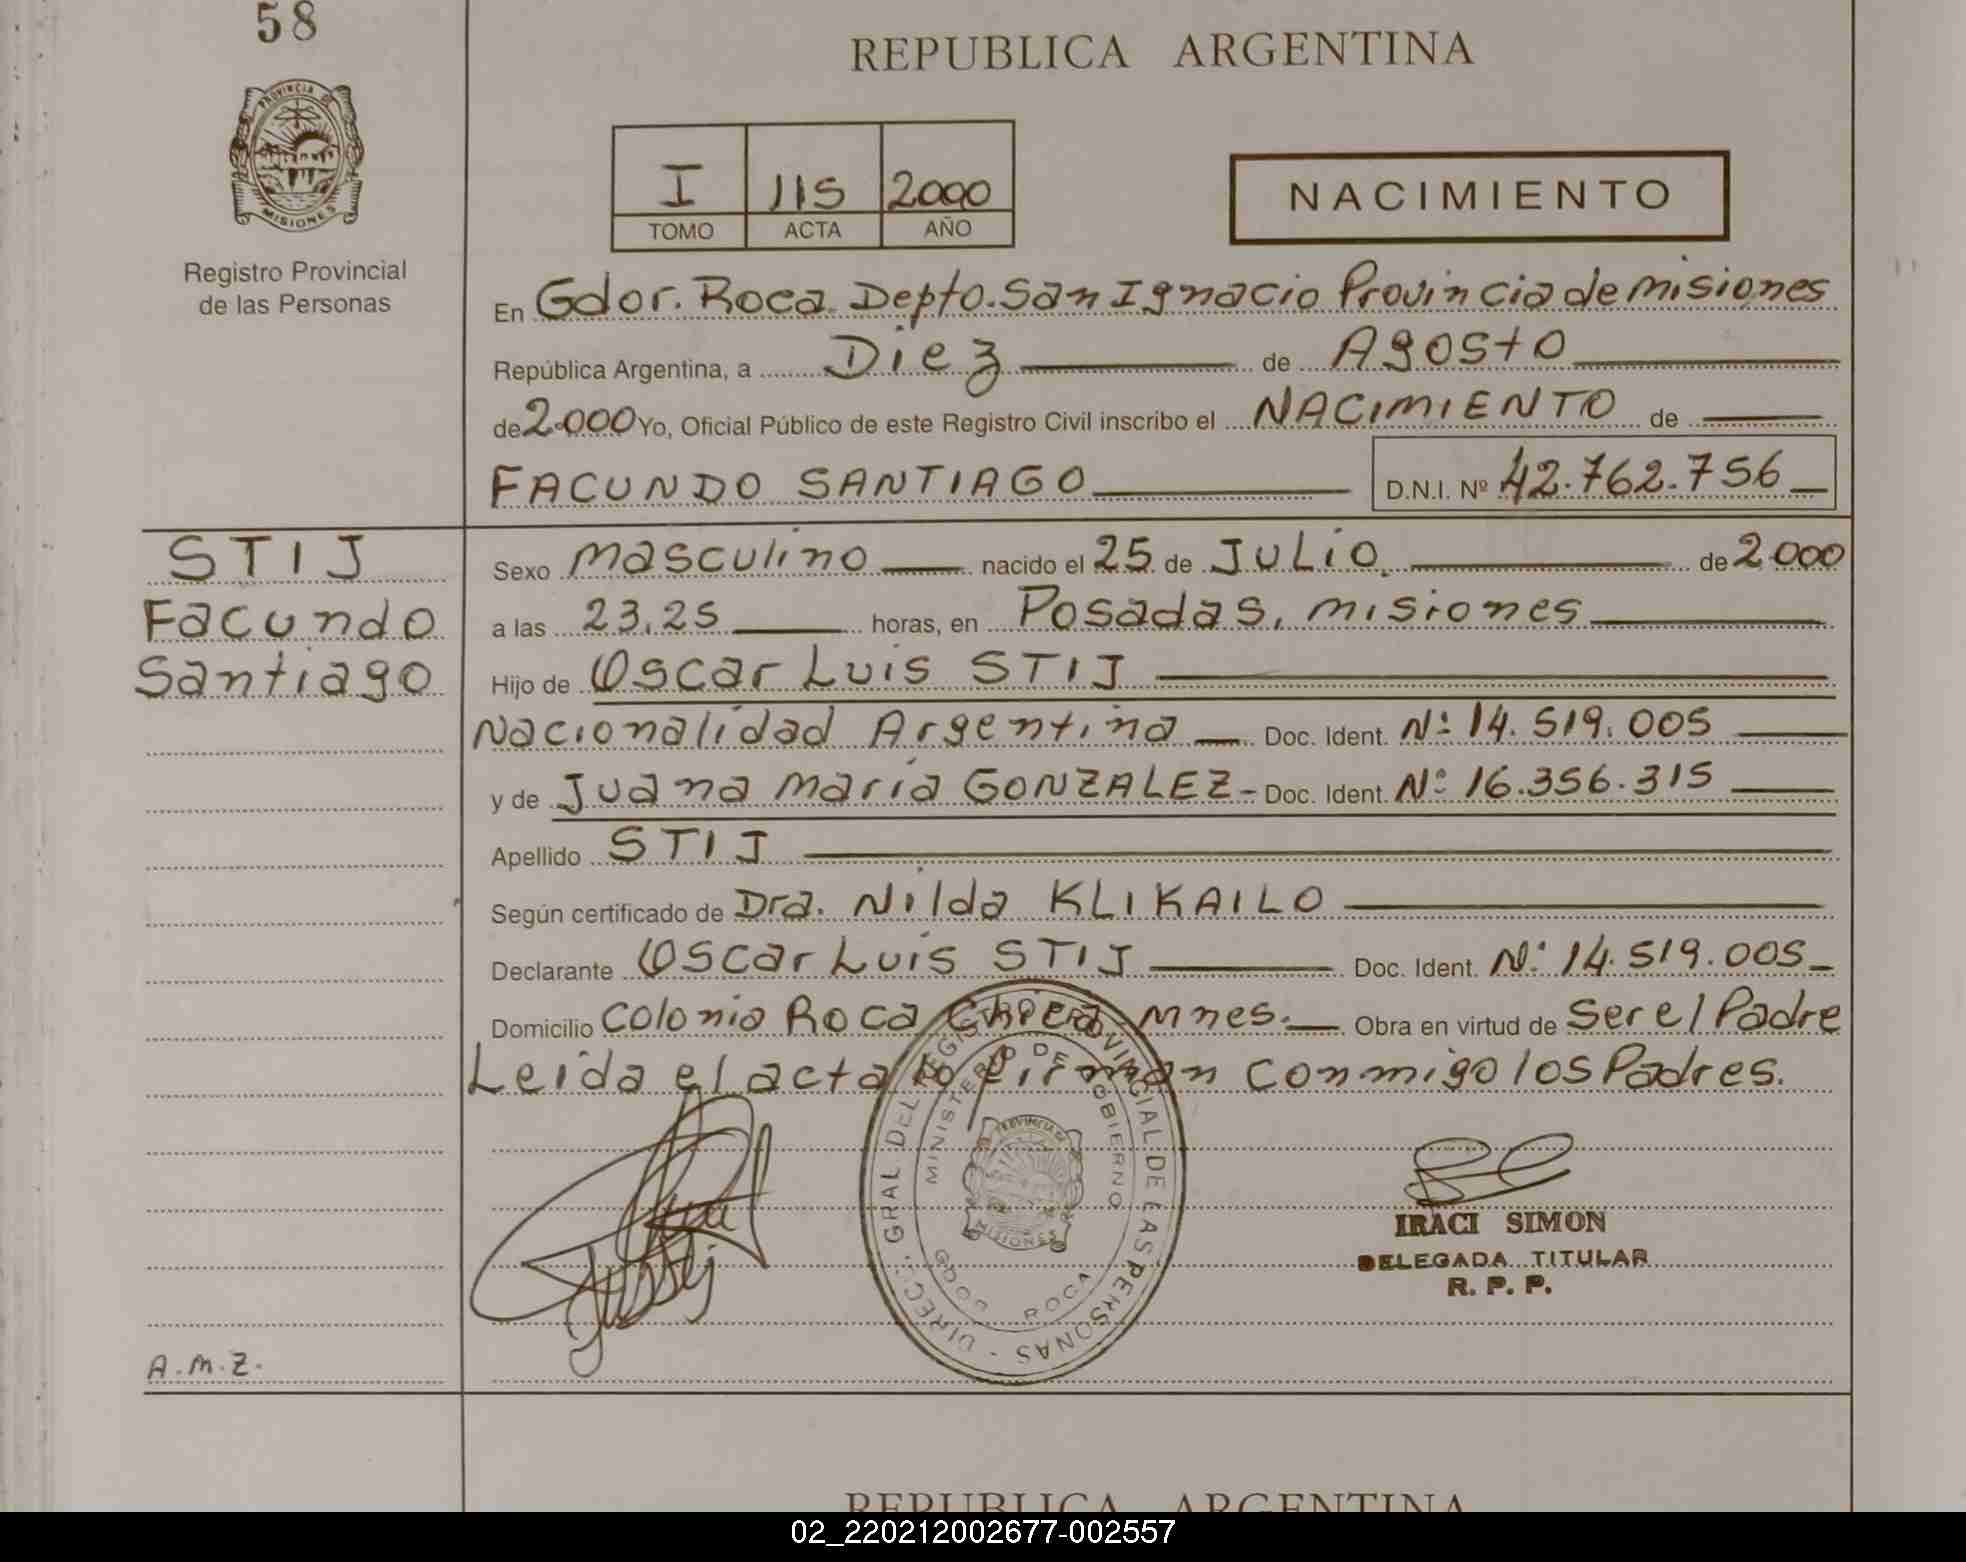 58
REPUBLICA ARGENTINA
PROVINCIA DE
MISIONES
Registro Provincial
de las Personas
I 115 2000
TOMO ACTA AÑO
NACIMIENTO
En Gdor. Roca. Depto. San Ignacio Provincia de misiones
República Argentina, a Diez de Agosto
de 2.000 Yo, Oficial Público de este Registro Civil inscribo el NACIMIENTO de
FACUNDO SANTIAGO D.N.I. Nº 42.762.756
STIJ
Facundo
Santiago
Sexo masculino nacido el 25 de JULIO. de 2.000
a las 23,25 horas, en Posadas, misiones
Hijo de Oscar Luis STIJ
Nacionalidad Argentina Doc. Ident. Nº 14.519.005
y de Juana maria GONZALEZ- Doc. Ident. Nº 16.356.315
Apellido STIJ
Según certificado de Dra. Nilda KLIKAILO
Declarante Oscar Luis STIJ Doc. Ident. Nº 14.519.005
Domicilio Colonia Roca Mnes. Obra en virtud de Ser el Padre
Leida el acta lo Firman conmigo los Padres.
DIREC. GRAL DEL REGISTRO PROVINCIAL DE LAS PERSONAS -
MINISTERIO DE GOBIERNO
PROVINCIA DE
MISIONES
GDOR ROCA
IRACI SIMON
DELEGADA TITULAR
R. P. P.
A.M.Z.
REPUBLICA ARGENTINA
02_220212002677-002557